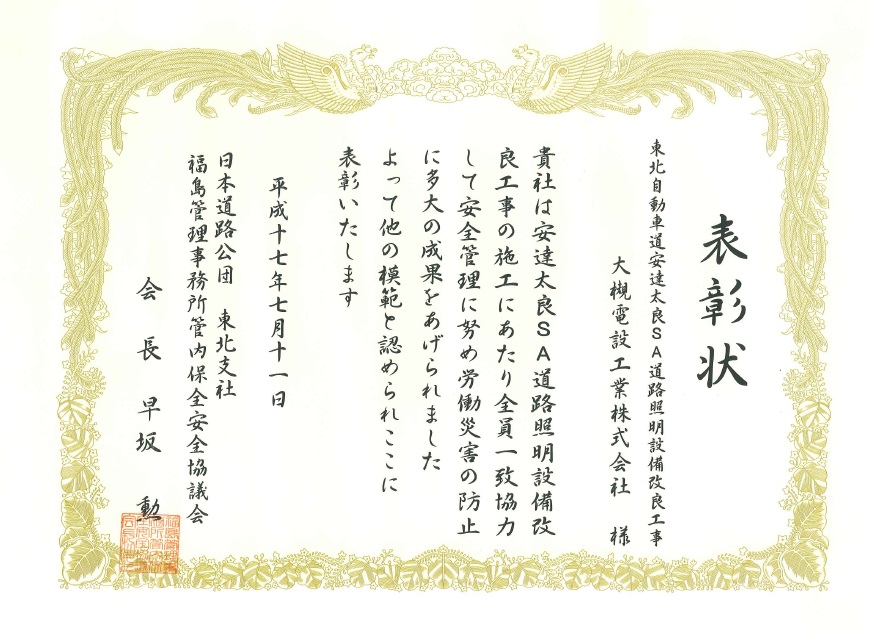 表彰状
東北自動車道安達太良SA道路照明設備改良工事
大槻電設工業株式会社 様
貴社は安達太良SA道路照明設備改
良工事の施工にあたり全員一致協力
して安全管理に努め労働災害の防止
に多大の成果をあげられました
よって他の模範と認められここに
表彰いたします
平成十七年七月十一日
日本道路公団 東北支社
福島管理事務所管内保全安全協議会
会長 早坂 勲